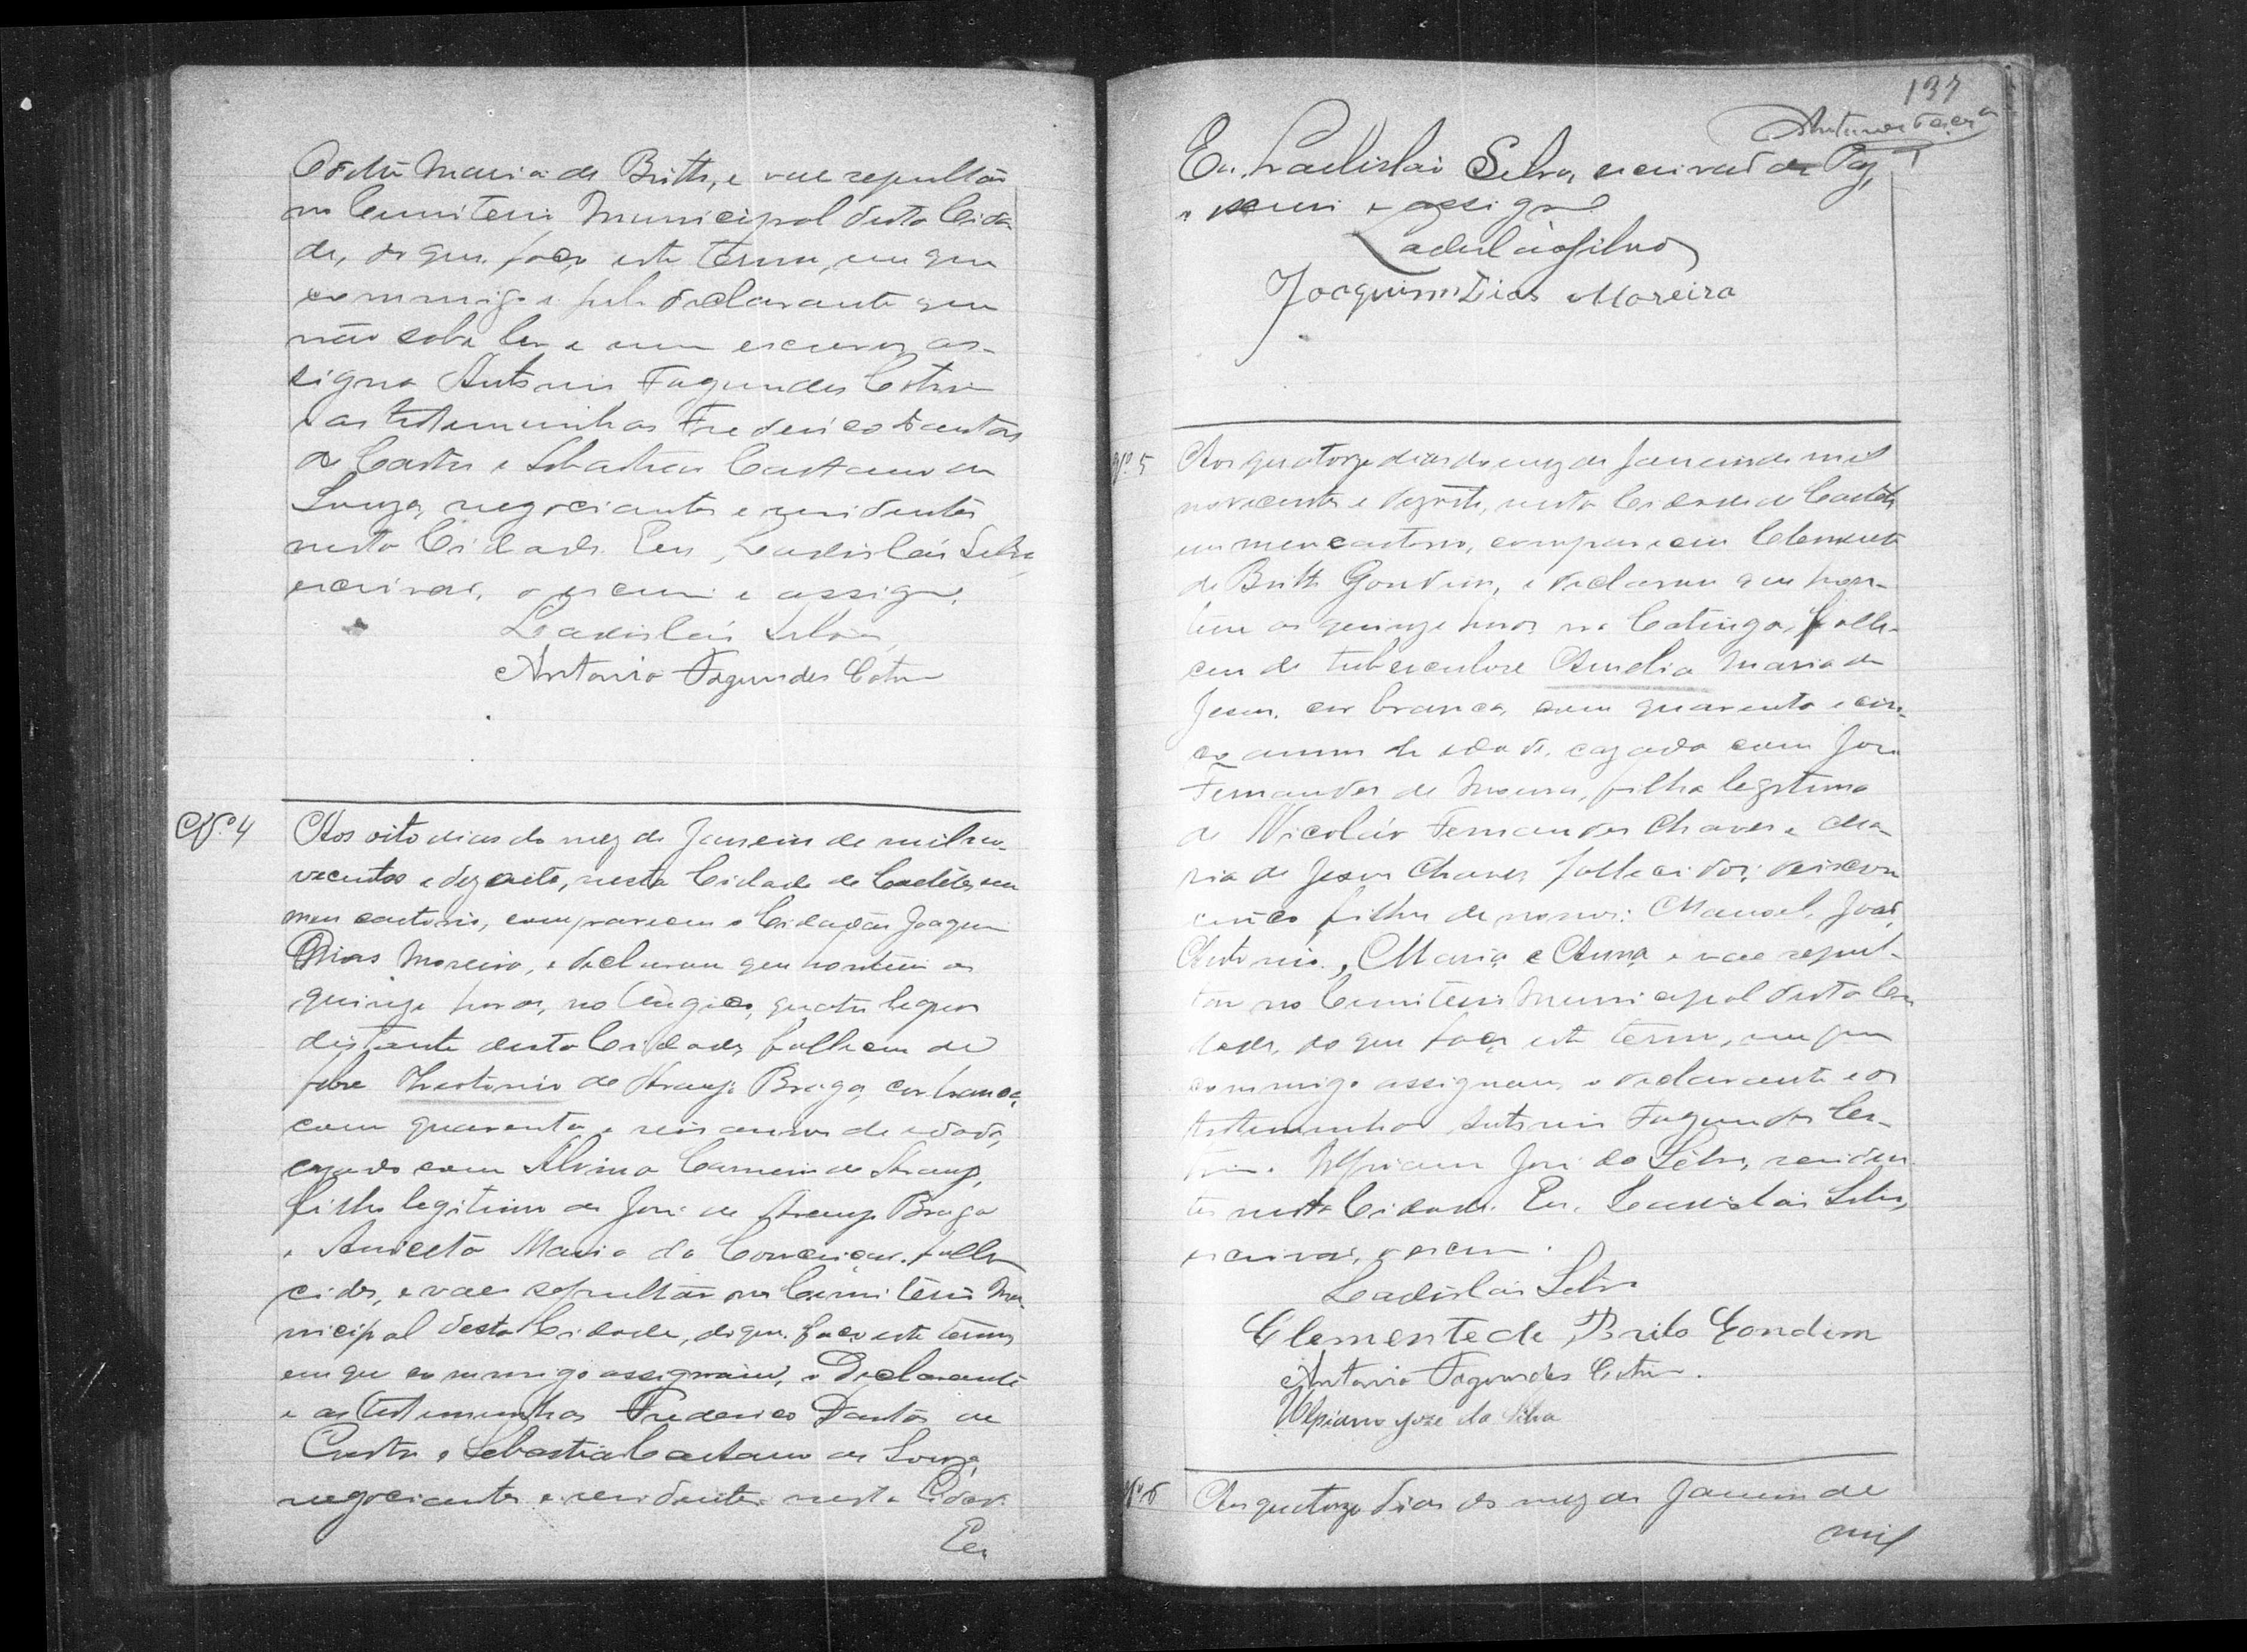 Maria de Britto, e vae sepultar
no Cemiterio Municipal desta Cida
de, do que faço este termo, em que
commigo e pelo declarante que
não sabe ler e nem escrever as-
signa Antonio Fagundes Cotrim
e as testemunhas Frederico Dantas
de Castro e Sebastião Caetano de
Souza, negociantes e residentes
nesta Cidade. Eu, Ladisláo Silva,
escrivão, o escrevi e assigno.
Ladisláo Silva
Antonio Fagundes Cotrim
Nº 4
Aos oito dias do mez de Janeiro de mil no-
vecentos e dezoito, nesta Cidade de Caeteté, em
meu cartorio, compareceu o Cidadão Joaquim
Dias Moreira, e declarou que hontem as
quinze horas, no quatro leguas
distante desta Cidade, falleceu de
febre de Araujo Braga, cor branca,
com quarenta e seis annos de edade,
cazado com Alvina Carneiro de Araujo,
filho legitimo de José de Araujo Braga
e Aniceta Maria da Conceição, falle
cidos, e vae sepultar no Cemiterio Mu-
nicipal desta Cidade, do que faço este termo
em que commigo assignam, o Declarante
e as testemunhas Frederico Dantas de
Castro e Sebastião Caetano de Souza,
negociantes e residentes nesta Cidade.
Eu
137
Eu, Ladisláo Silva, escrivão de Paz,
o escrevi e assigno
Ladisláo Silva
Joaquim Dias Moreira
Nº 5
Aos quatorze dias do mez de Janeiro de mil
novecentos e dezoito, nesta Cidade de Caeteté
em meu cartorio, compareceu Clemente
de Britto Gondim, e declarou que hon-
tem as quinze horas na Catinga, falle-
ceu de tuberculose Amelia Maria de
Jesus, cor branca, com quarenta e cin-
co annos de edade, cazada com José
Fernandes de Moura, filha legitima
de Nicoláo Fernandes Chaves e Ma-
ria de Jesus Chaves, fallecidos; deixou
cinco filhos de nomes: Manoel, João,
Antonio, Maria e Anna e vae sepul-
tar no Cemiterio Municipal desta Ci
dade, do que faço este termo, em que
commigo assignam, o declarante e as
testemunhas Antonio Fagundes Co-
trim e Ulpiano José da Silva, residen
tes nesta Cidade. Eu, Ladisláo Silva,
escrivão, o escrevi.
Ladisláo Silva
Clemente de Brito Gondim
Antonio Fagundes Cotrim.
Ulpiano José da Silva
Nº 6
Aos quatorze dias do mez de Janeiro de
mil